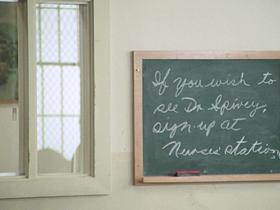 If you wish to
see Dr. Spivey,
sign-up at
Nurses' station